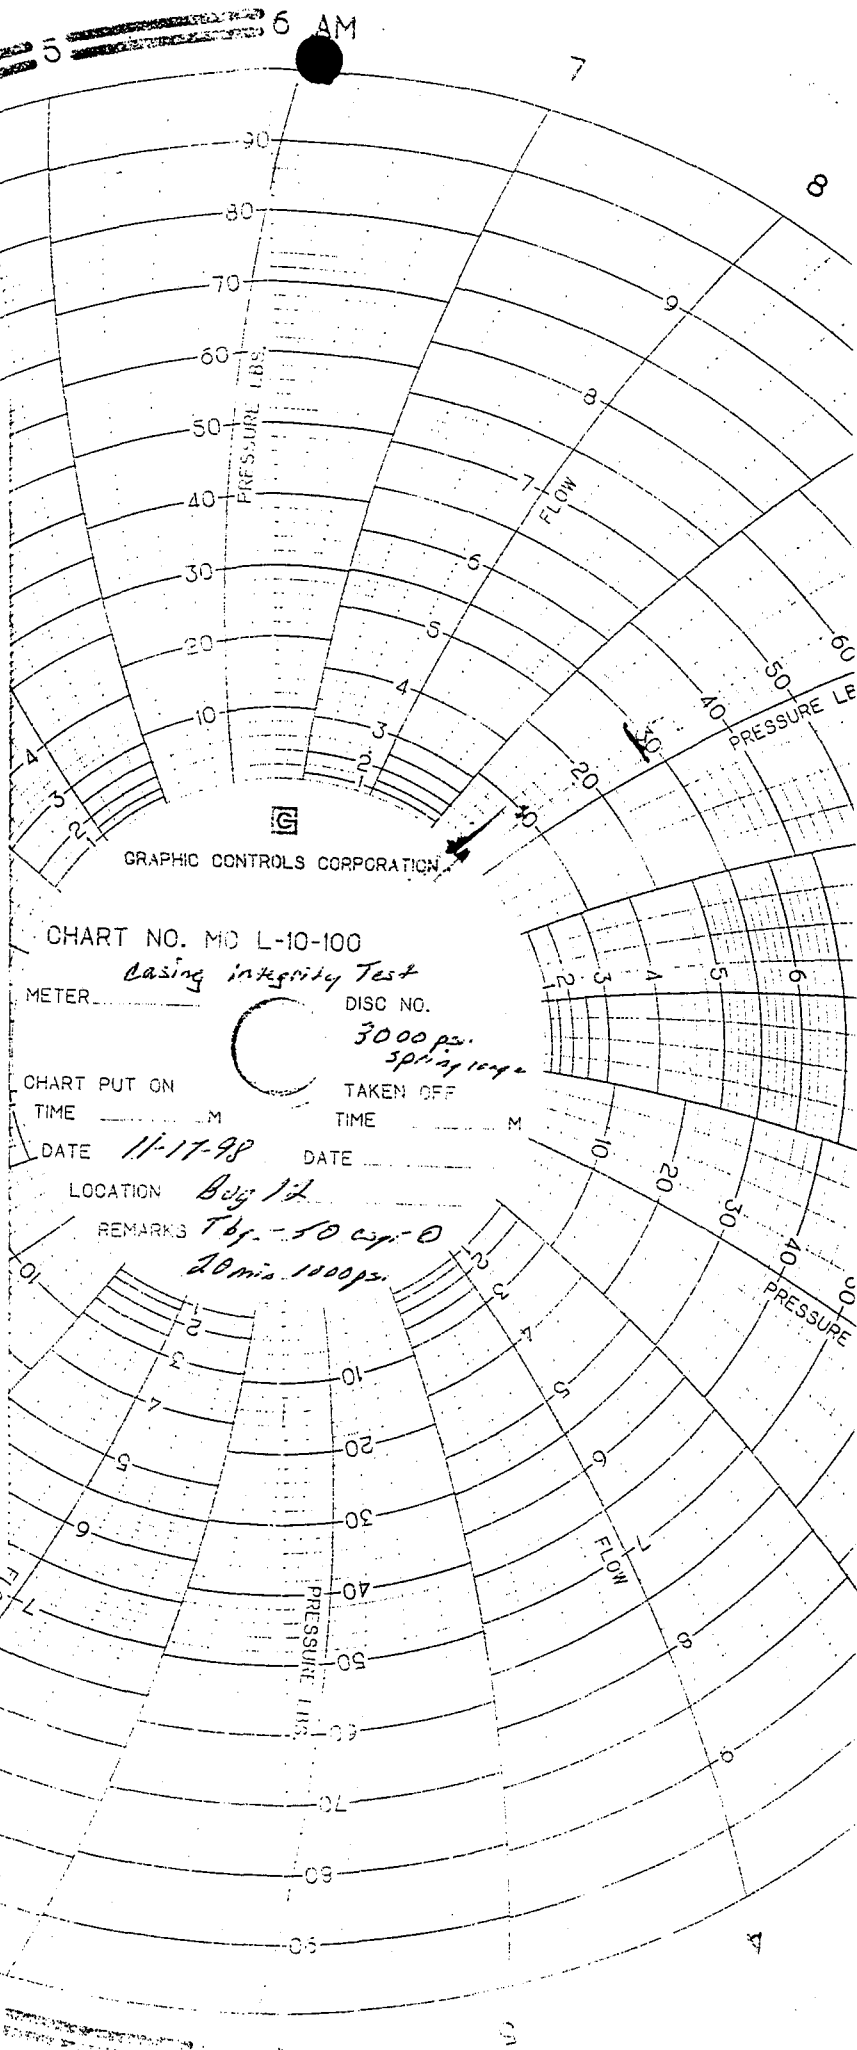 5
6 AM
7
8
90
80
70
60
50
40
30
20
10
PRESSURE LBS.
9
8
7
FLOW
6
5
4
3
2
1
4
3
2
1
60
50
40
30
20
10
PRESSURE LB
G
GRAPHIC CONTROLS CORPORATION
CHART NO. MC L-10-100
Casing integrity Test
METER
DISC NO.
3000 psi.
spring range
CHART PUT ON
TAKEN OFF
TIME M
TIME M
DATE 11-17-98
DATE
LOCATION Bug 12
REMARKS Tbg.-50 csg-0
20 min 1000psi
1
2
3
4
5
6
10
20
30
40
50
PRESSURE
10
1
2
3
4
5
6
7
10
20
30
40
50
60
70
80
90
PRESSURE LBS.
2
3
4
5
6
7
FLOW
8
9
4
5